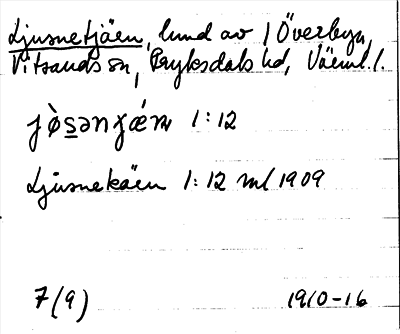 Ljusnetjäen, lund av 1 Överbyn,
Vitsands sn, Fryksdals hd, Värml. l.
jò̀s̲ənɟǽn 1:12
Ljusnekäen 1:12 ml 1909
7(9) 1910-16